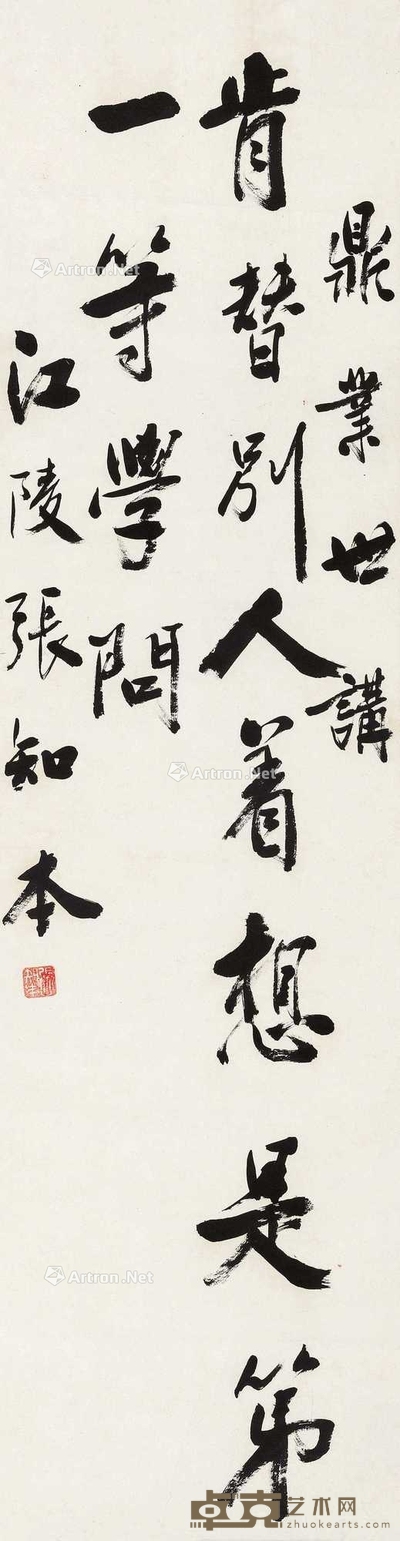 鼎業世講
肯替別人着想是第
一等學問
江陵張知本
Artron.Net
Artron.Net
Artron.Net
Artron.Net
卓克艺术网
zhuokearts.com